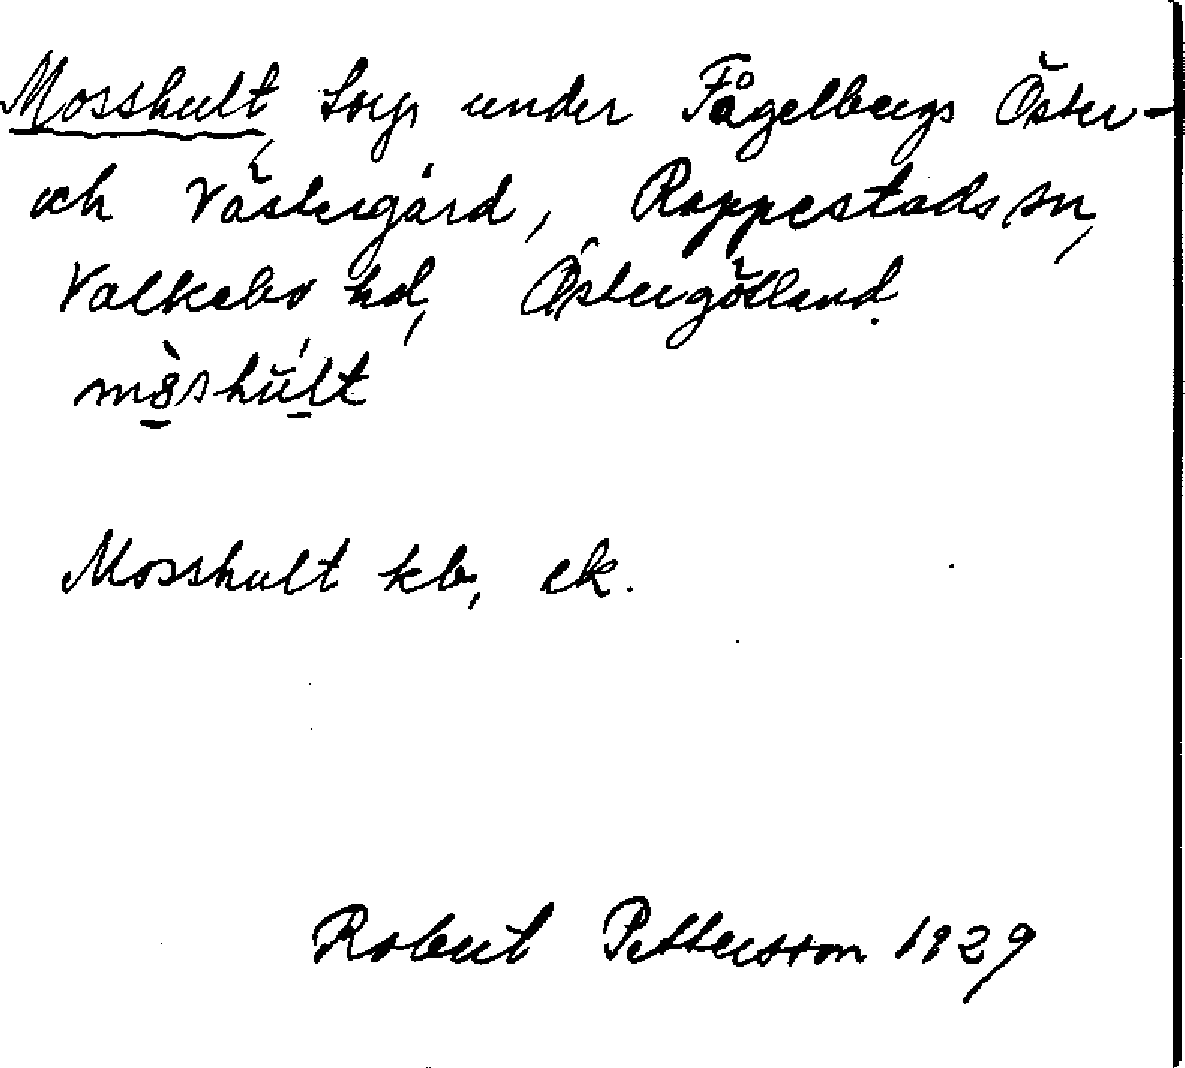 Mosshult, torp under Fågelbergs Öster-
och Västergård, Rappestads sn,
Valkebo hd, Östergötland.
Mosshult kb, ek.
Robert Pettersson 1929